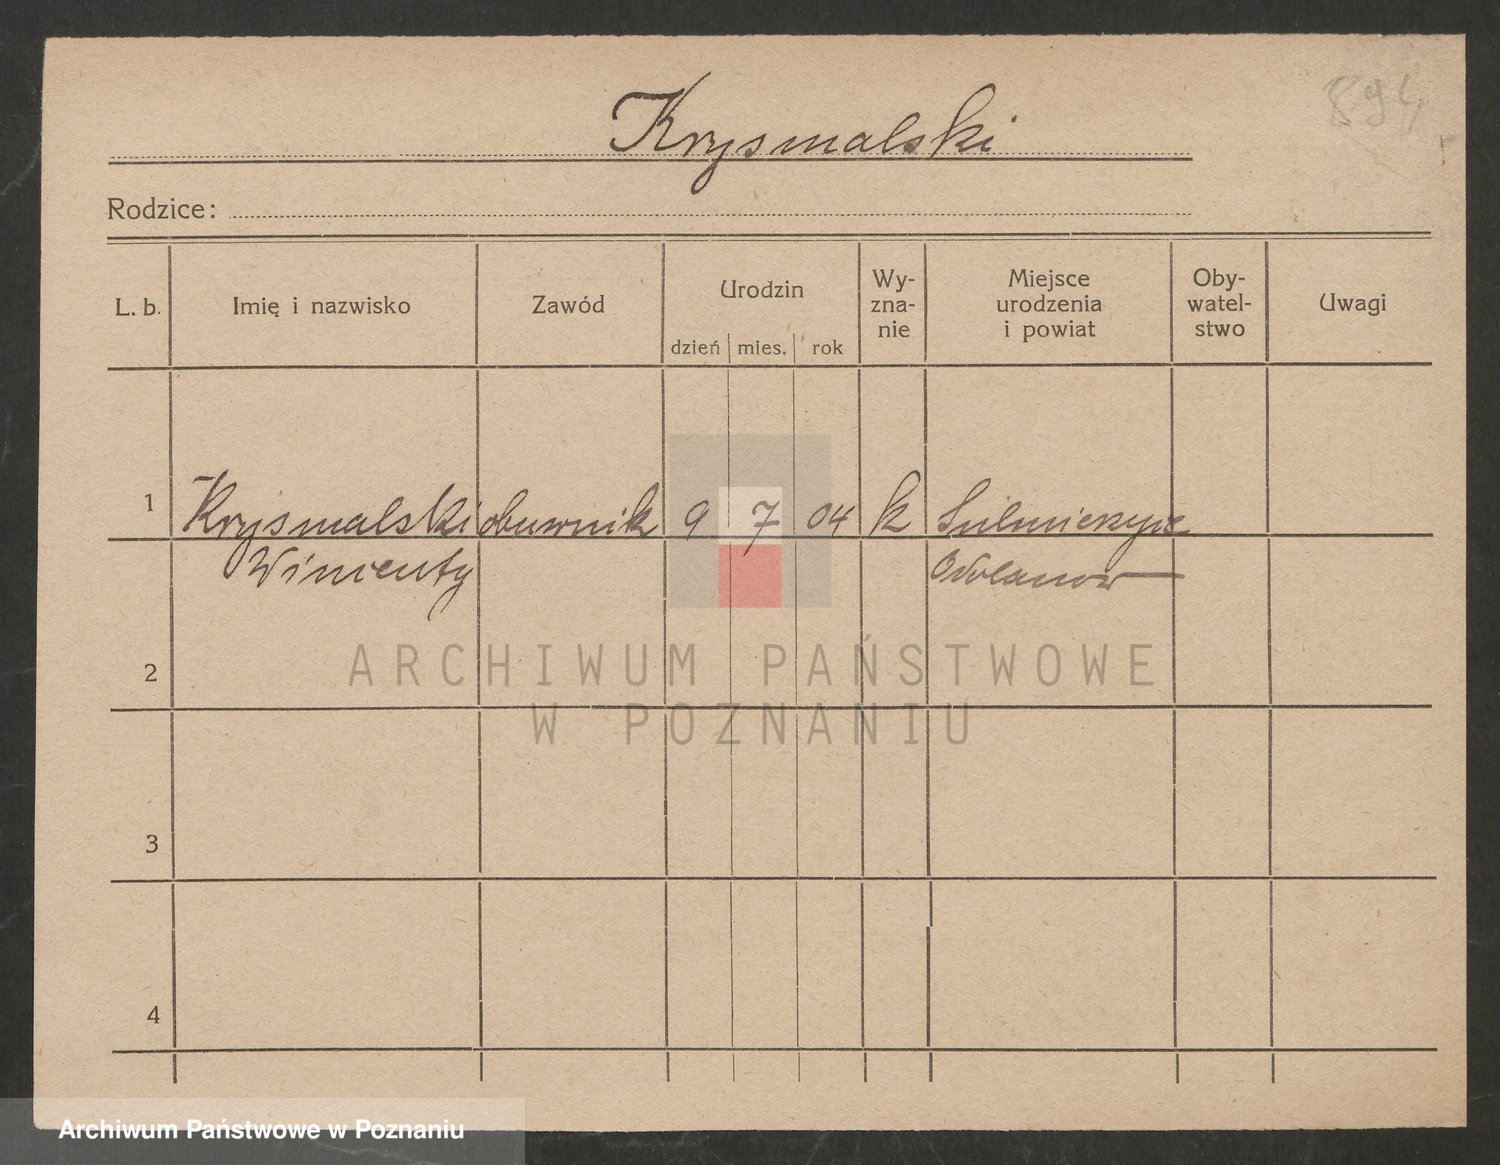 894
Krysmalski
Rodzice:
L. b. Imię i nazwisko Zawód Urodzin dzień mies. rok Wy-zna-nie Miejsce urodzenia i powiat Oby-watel-stwo Uwagi
1 Krysmalski obuwnik 9 7 04 k Sulmierzyce
Wincenty Odolanow
2
ARCHIWUM PAŃSTWOWE
W POZNANIU
3
4
Archiwum Państwowe w Poznaniu